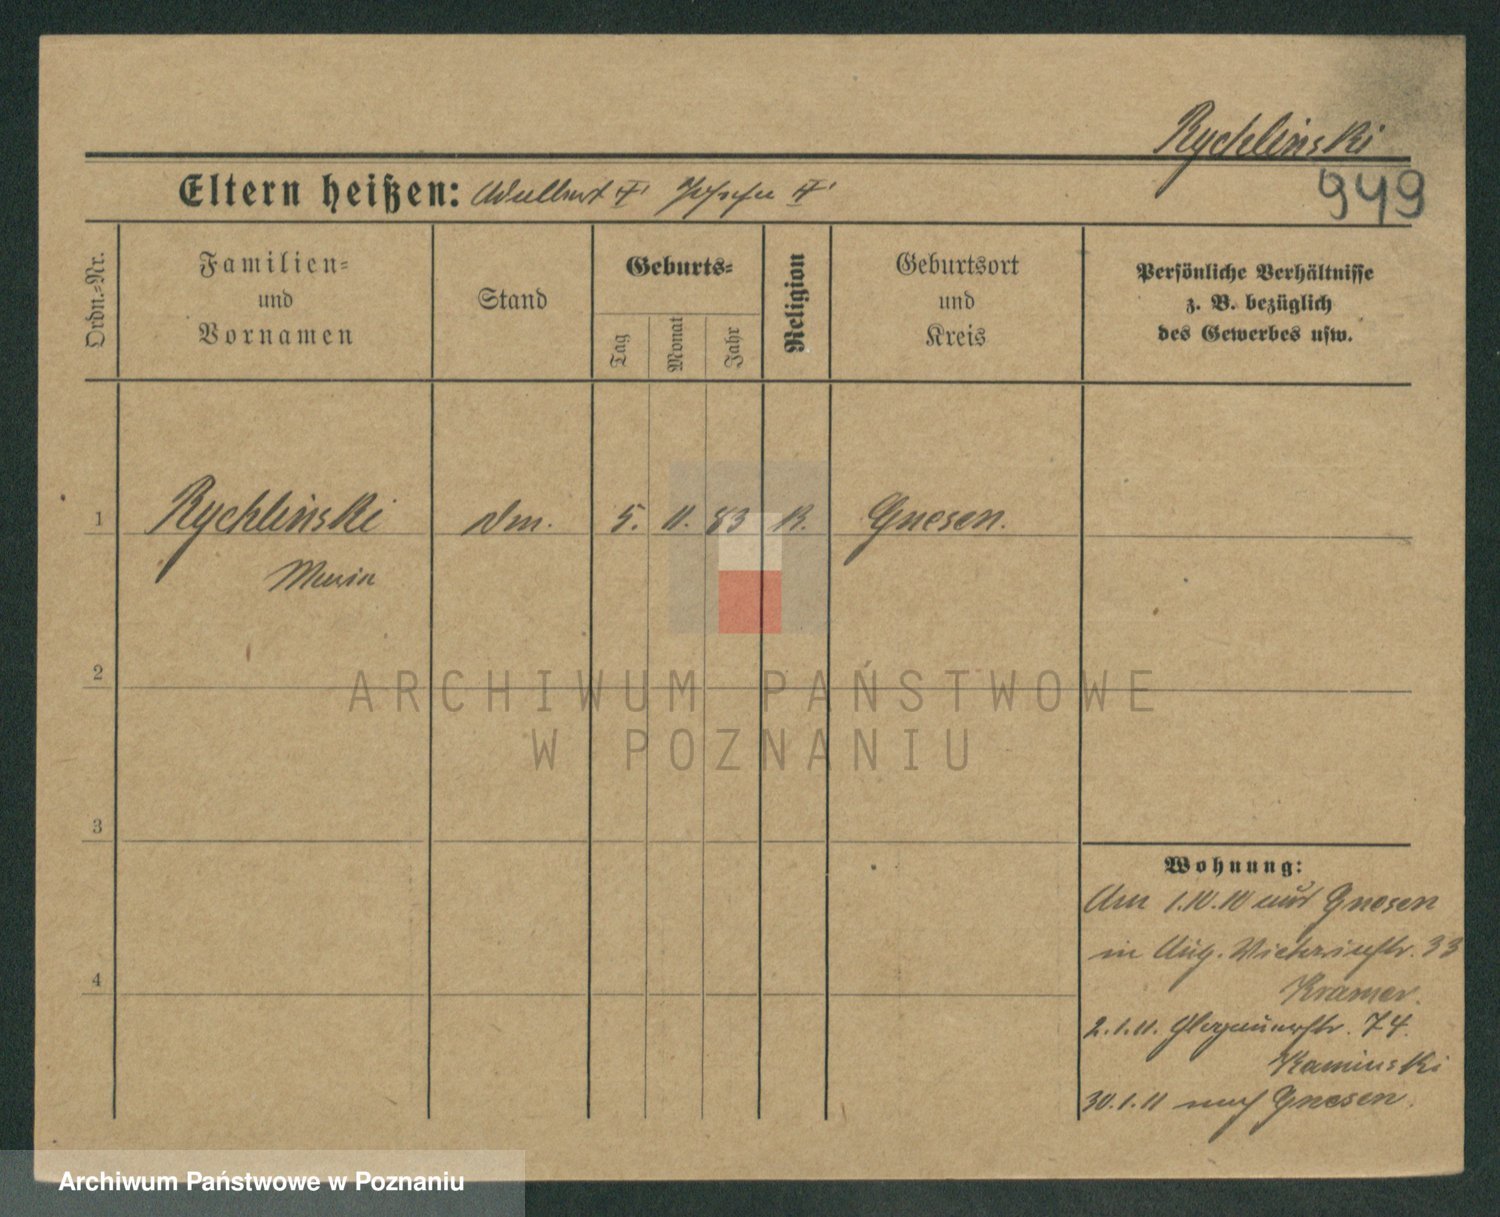 Rychlinski
949
Eltern heißen: Adalbert Josefa
Ordn.-Nr.
Familien- und Vornamen
Stand
Geburts-
Tag
Monat
Jahr
Religion
Geburtsort und Kreis
Persönliche Verhältnisse
z. B. bezüglich
des Gewerbes usw.
1 Rychlinski 5. 11. 83 K. Gnesen.
Maria
2
ARCHIWUM PAŃSTWOWE
W POZNANIU
3
4
Wohnung:
Am 1.10.10 aus Gnesen
in Aug. Viktoriastr. 33
Kramer.
2.1.11. Glogauerstr. 74.
Kaminski
30.1.11 nach Gnesen.
Archiwum Państwowe w Poznaniu